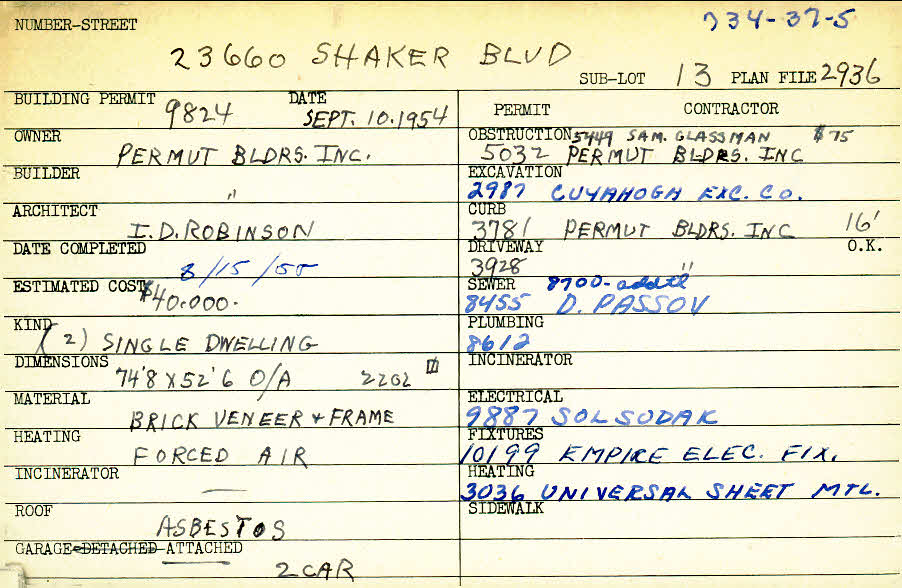 NUMBER-STREET
734-37-5
23660 SHAKER BLVD
SUB-LOT 13 PLAN FILE 2936
BUILDING PERMIT 9824 DATE SEPT. 10.1954
OWNER PERMUT BLDRS. INC.
BUILDER "
ARCHITECT I.D. ROBINSON
DATE COMPLETED 8/15/55
ESTIMATED COST $40.000.
KIND (2) SINGLE DWELLING
DIMENSIONS 74'8 X 52'6 O/A 2202
MATERIAL BRICK VENEER + FRAME
HEATING FORCED AIR
INCINERATOR —
ROOF ASBESTOS
GARAGE-DETACHED-ATTACHED
2 CAR
PERMIT CONTRACTOR
OBSTRUCTION 5449 SAM. GLASSMAN $75
5032 PERMUT BLDRS. INC
EXCAVATION
2987 CUYAHOGA EXC. CO.
CURB
3781 PERMUT BLDRS. INC 16'
DRIVEWAY O.K.
3928 "
SEWER 8700-addtl
8455 D. PASSOV
PLUMBING
8612
INCINERATOR
ELECTRICAL
9887 SOL SUDAK
FIXTURES
10199 EMPIRE ELEC. FIX.
HEATING
3036 UNIVERSAL SHEET MTL.
SIDEWALK